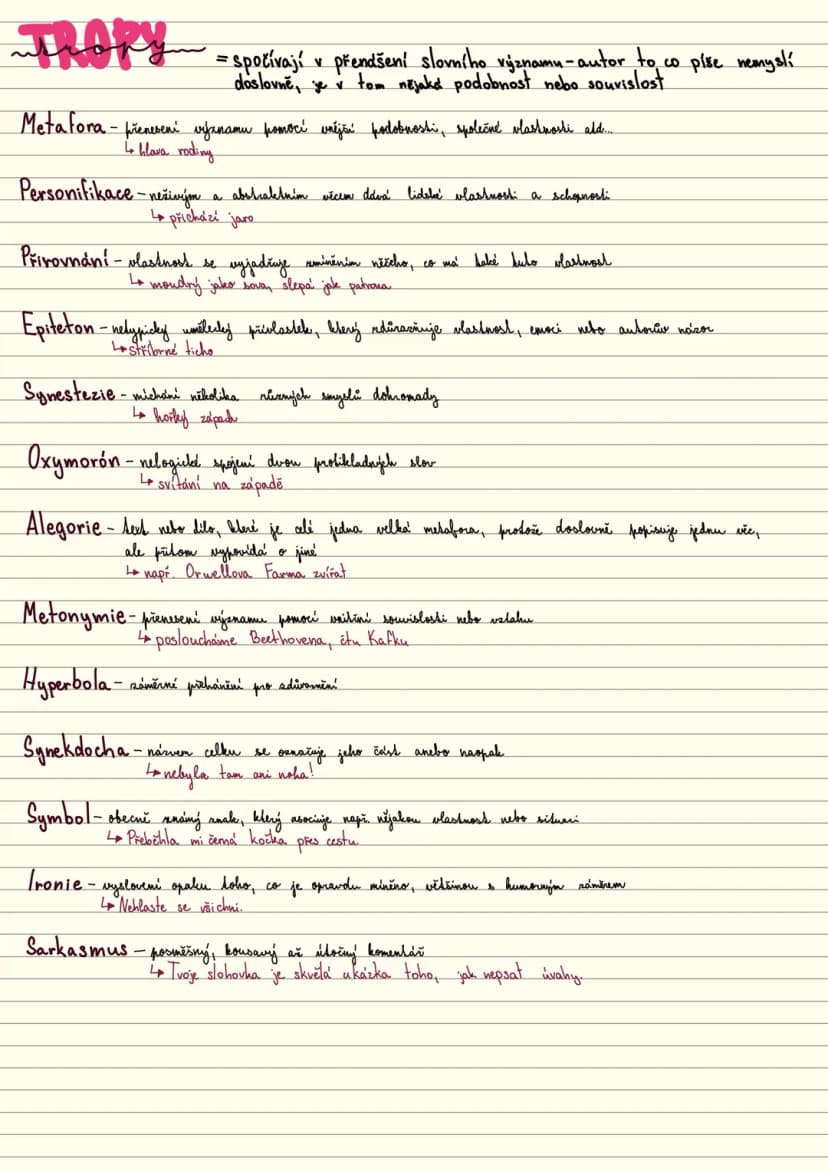 TROPY
tropy
= spočívají v přendšení slovního významu - autor to, co píše nemyslí
doslovně, je v tom nějaká podobnost nebo souvislost
Metafora - přenesení významu pomocí vnější podobnosti, společné vlastnosti atd...
↳ hlava rodiny
Personifikace - neživým a abstraktním věcem dává lidské vlastnosti a schopnosti
↳ přichází jaro
Přirovnání - vlastnost se vyjadřuje zmíněním něčeho, co má také tuto vlastnost
↳ moudrý jako sova, slepá jak patrona
Epiteton - netypický umělecký přívlastek, který zdůrazňuje vlastnost, emoci nebo autorův názor
↳ stříbrné ticho
Synestezie - míchání několika různých smyslů dohromady
↳ hořký západ
Oxymorón - nelogické spojení dvou protikladných slov
↳ svítání na západě
Alegorie - text nebo dílo, které je celé jedna velká metafora, protože doslovně popisuje jednu věc,
ale přitom vypovídá o jiné
↳ např. Orwellova Farma zvířat
Metonymie - přenesení významu pomocí vnitřní souvislosti nebo vztahu
↳ posloucháme Beethovena, čtu Kafku
Hyperbola - záměrné přehánění pro zdůraznění
Synekdocha - názvem celku se označuje jeho část anebo naopak
↳ nebyla tam ani noha!
Symbol - obecně známý znak, který asociuje např. nějakou vlastnost nebo situaci
↳ Přeběhla mi černá kočka přes cestu
Ironie - vyslovení opaku toho, co je opravdu míněno, většinou s humorným záměrem
↳ Nehlaste se všichni.
Sarkasmus - posměšný, kousavý až útočný komentář
↳ Tvoje slohovka je skvělá ukázka toho, jak nepsat úvahy.